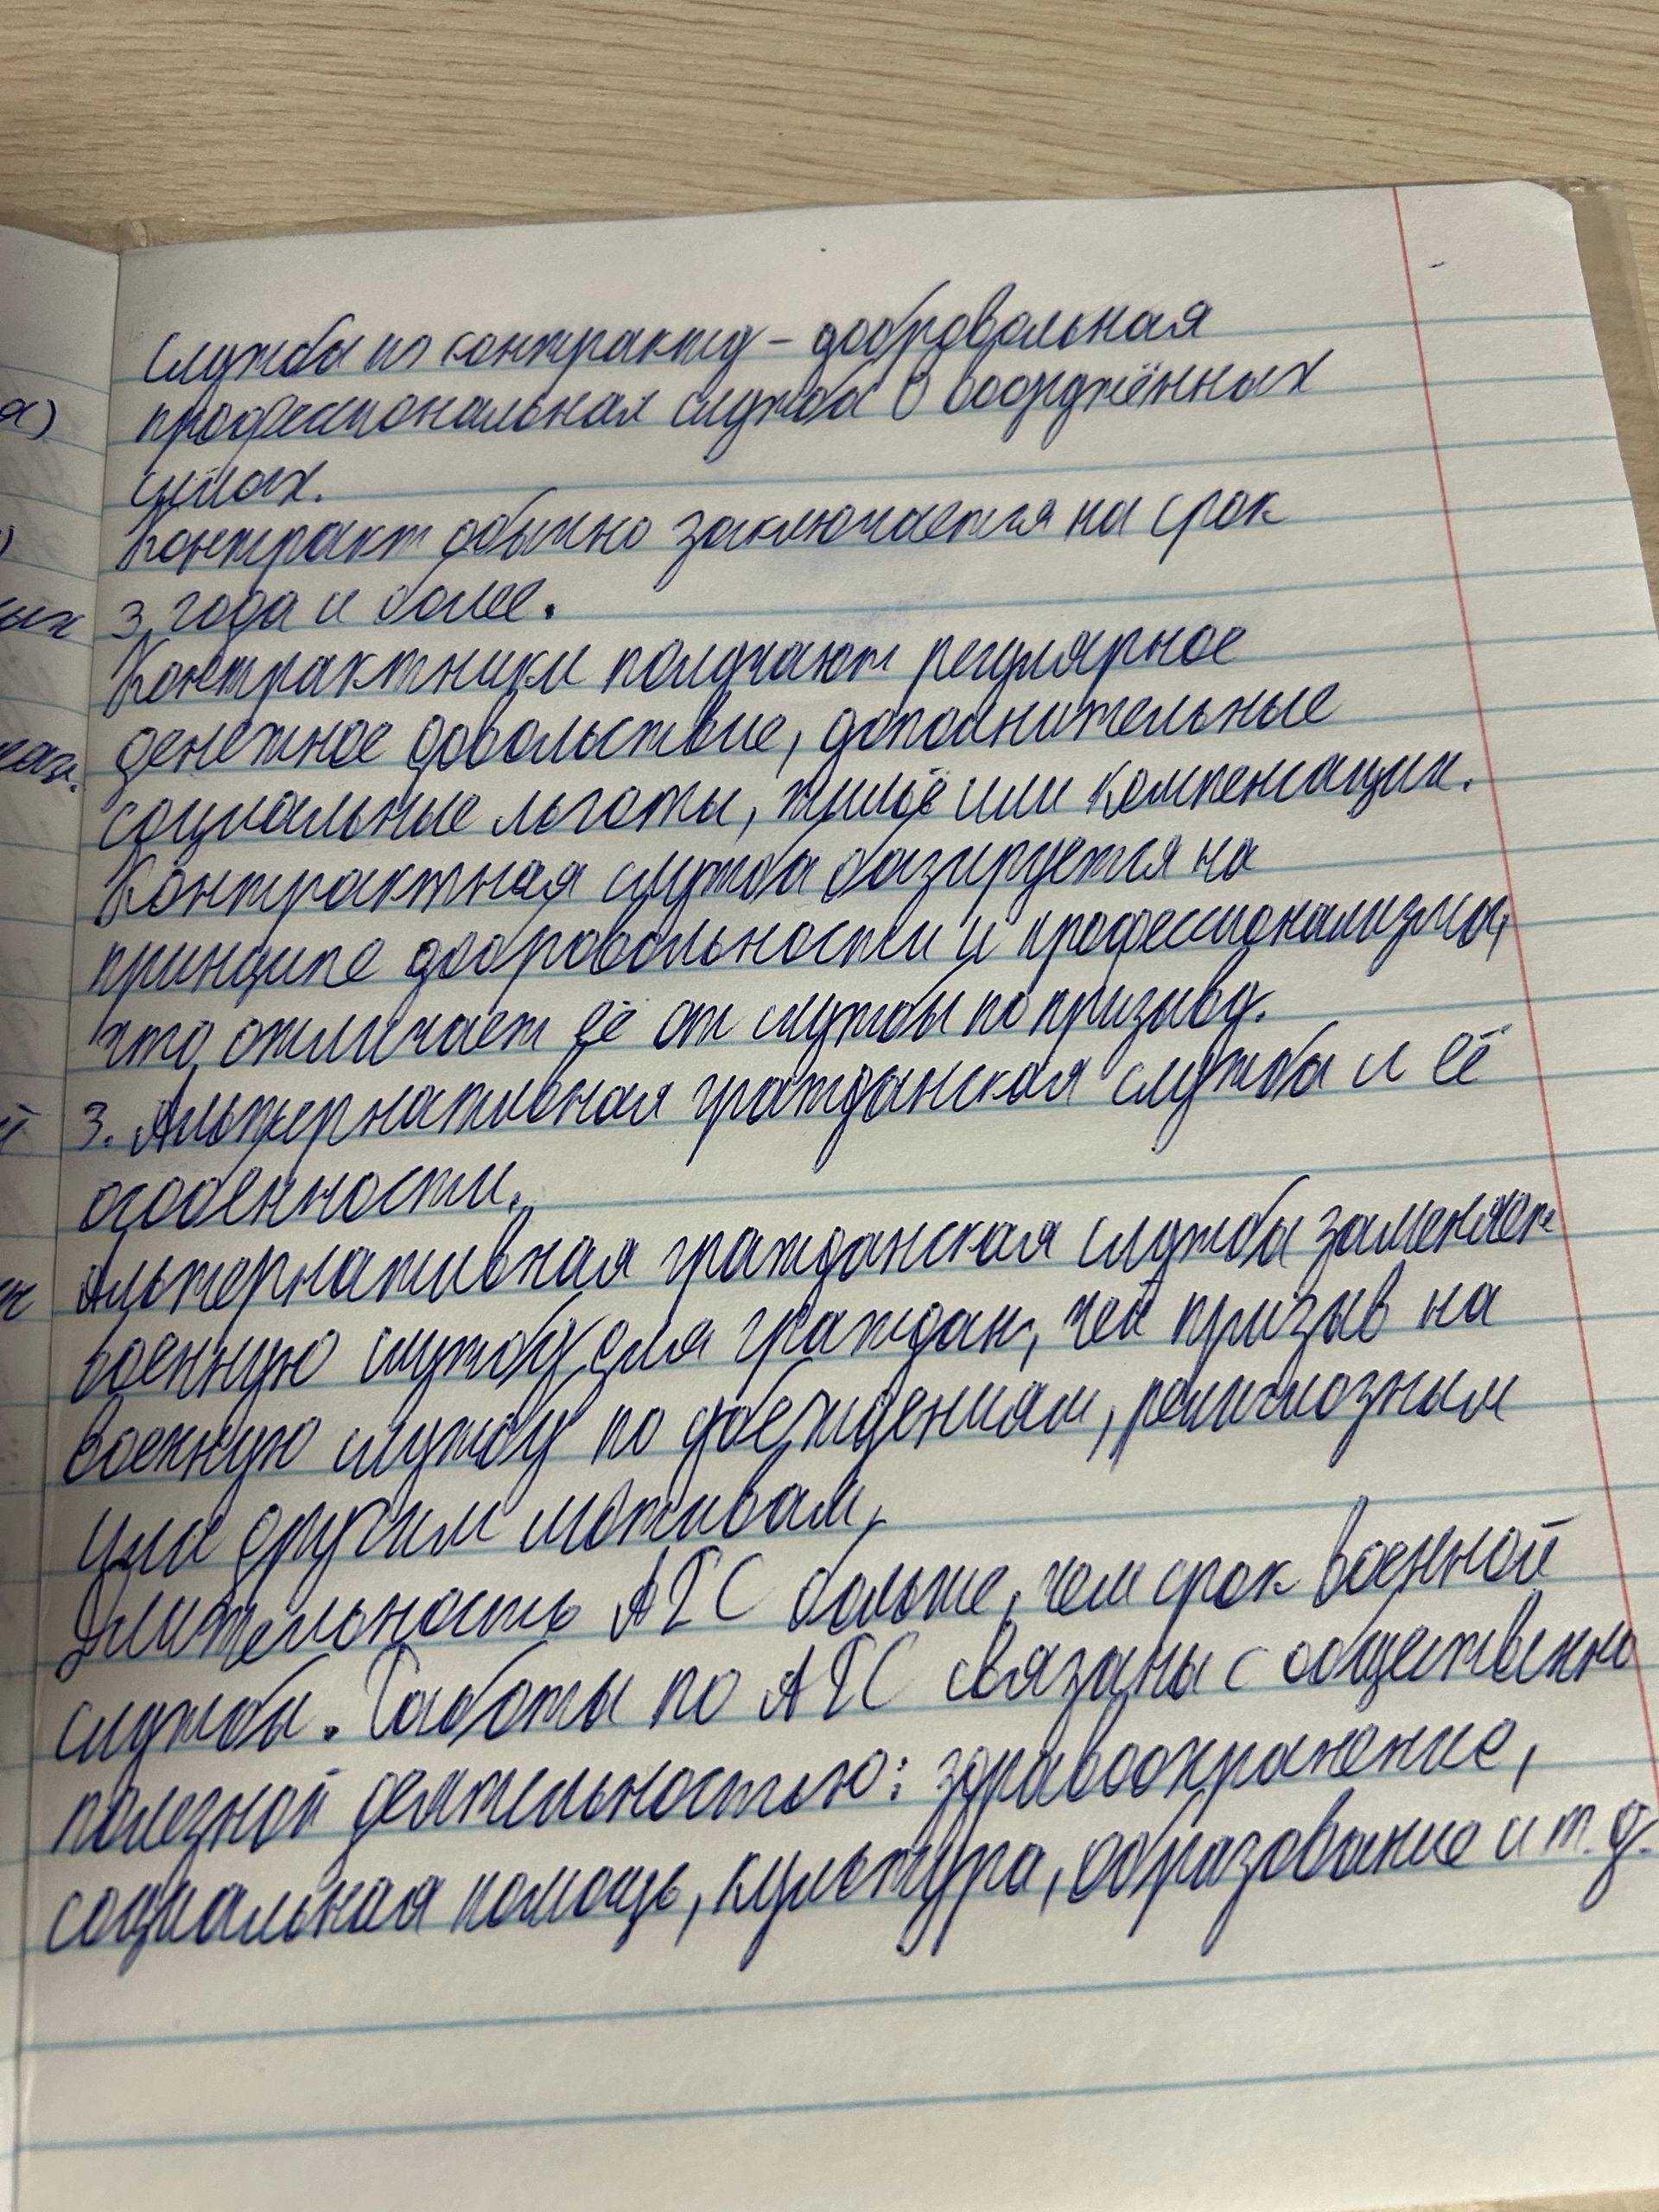 Служба по контракту – добровольная
профессиональная служба в вооружённых
силах.
Контракт обычно заключается на срок
3 года и более.
Контрактники получают регулярное
денежное довольствие, дополнительные
социальные льготы, жильё или компенсации.
Контрактная служба базируется на
принципе добровольности и профессионализма,
что отличает её от службы по призыву.
3. Альтернативная гражданская служба и её
особенности.
Альтернативная гражданская служба заменяет
военную службу для граждан, чей призыв на
военную службу по убеждениям, религиозным
или другим мотивам.
Длительность АГС больше, чем срок военной
службы. Работы по АГС связаны с общественно
полезной деятельностью: здравоохранение,
социальная помощь, культура, образование и т.д.